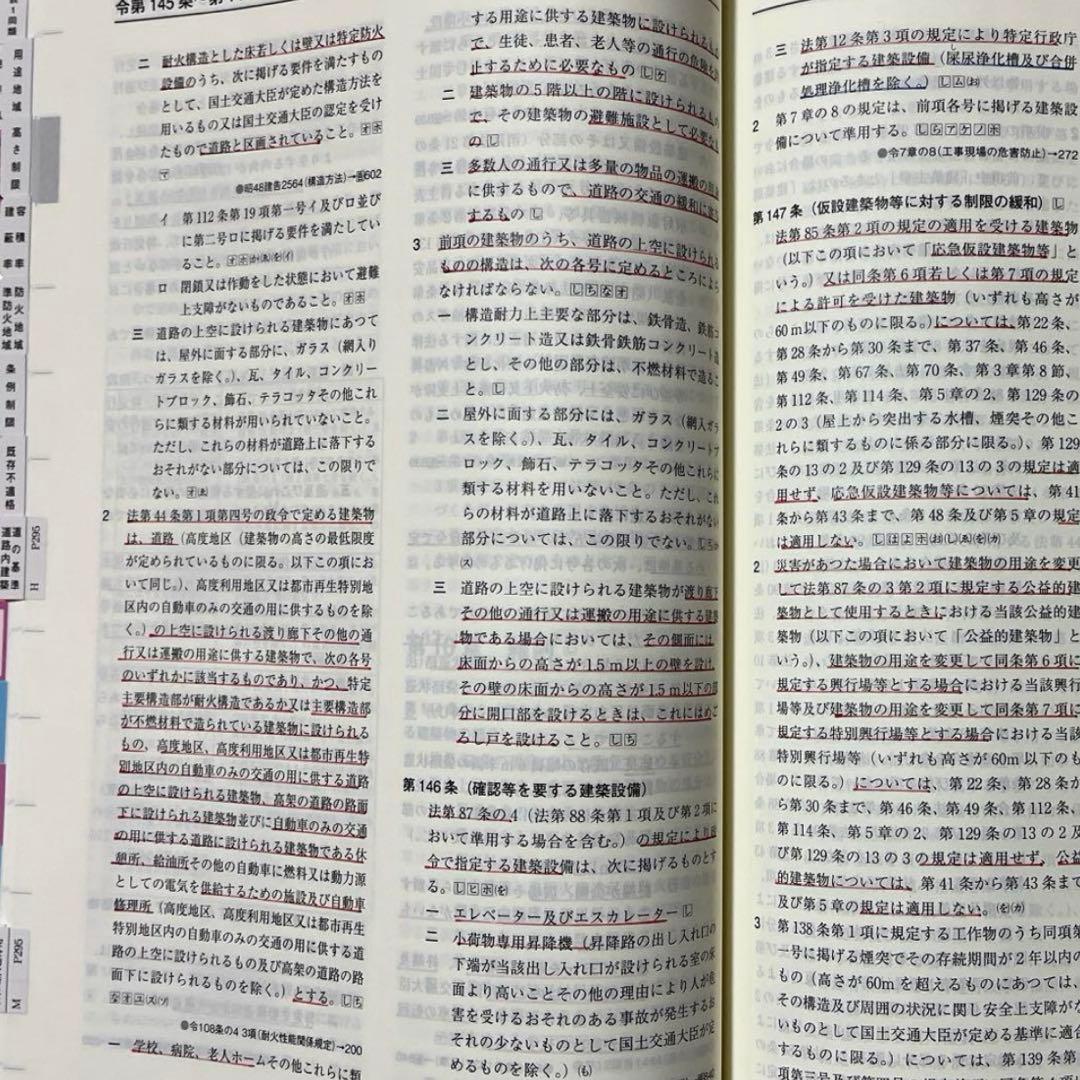 令第145条
二 耐火構造とした床若しくは壁又は特定防火
設備のうち、次に掲げる要件を満たすもの
として、国土交通大臣が定めた構造方法を
用いるもの又は国土交通大臣の認定を受け
たもので道路と区画されていること。
●昭48建告2564(構造方法)→画602
イ 第112条第19項第一号イ及びロ並び
に第二号ロに掲げる要件を満たしてい
ること。
ロ 閉鎖又は作動をした状態において避難
上支障がないものであること。
三 道路の上空に設けられる建築物にあつて
は、屋外に面する部分に、ガラス(網入り
ガラスを除く。)、瓦、タイル、コンクリー
トブロック、飾石、テラコッタその他これ
らに類する材料が用いられていないこと。
ただし、これらの材料が道路上に落下する
おそれがない部分については、この限りで
ない。
2 法第44条第1項第四号の政令で定める建築物
は、道路(高度地区(建築物の高さの最低限度
が定められているものに限る。以下この項にお
いて同じ。)、高度利用地区又は都市再生特別地
区内の自動車のみの交通の用に供するものを除
く。)の上空に設けられる渡り廊下その他の通
行又は運搬の用途に供する建築物で、次の各号
のいずれかに該当するものであり、かつ、特定
主要構造部が耐火構造であるか又は主要構造部
が不燃材料で造られている建築物に設けられる
もの、高度地区、高度利用地区又は都市再生特
別地区内の自動車のみの交通の用に供する道路
の上空に設けられる建築物、高架の道路の路面
下に設けられる建築物並びに自動車のみの交通
の用に供する道路に設けられる建築物である休
憩所、給油所その他の自動車に燃料又は動力源
としての電気を供給するための施設及び自動車
修理所(高度地区、高度利用地区又は都市再生
特別地区内の自動車のみの交通の用に供する道
路の上空に設けられるもの及び高架の道路の路
面下に設けられるものを除く。)とする。
●令108条の4 3項(耐火性能関係規定)→200
一 学校、病院、老人ホームその他これらに類
する用途に供する建築物に設けられるもの
で、生徒、患者、老人等の通行の危険を
止するために必要なもの
二 建築物の5階以上の階に設けられるもの
で、その建築物の避難施設として必要なも
の
三 多数人の通行又は多量の物品の運搬の用
に供するもので、道路の交通の緩和に寄
するもの
3 前項の建築物のうち、道路の上空に設けられる
ものの構造は、次の各号に定めるところによら
なければならない。
一 構造耐力上主要な部分は、鉄骨造、鉄筋コ
ンクリート造又は鉄骨鉄筋コンクリート造
とし、その他の部分は、不燃材料で造るこ
と。
二 屋外に面する部分には、ガラス(網入ガラ
スを除く。)、瓦、タイル、コンクリートブ
ロック、飾石、テラコッタその他これらに
類する材料を用いないこと。ただし、これ
らの材料が道路上に落下するおそれがない
部分については、この限りでない。
三 道路の上空に設けられる建築物が渡り廊下
その他の通行又は運搬の用途に供する建築
物である場合においては、その側面には、
床面からの高さが1.5m以上の壁を設け、
その壁の床面からの高さが1.5m以下の部
分に開口部を設けるときは、これにはめご
ろし戸を設けること。
第146条(確認等を要する建築設備)
法第87条の4(法第88条第1項及び第2項に
おいて準用する場合を含む。)の規定により政
令で指定する建築設備は、次に掲げるものとす
る。
一 エレベーター及びエスカレーター
二 小荷物専用昇降機(昇降路の出し入れ口の
下端が当該出し入れ口が設けられる室の床
面より高いことその他の理由により人が危
害を受けるおそれのある事故が発生するお
それの少ないものとして国土交通大臣が定
めるものを除く。)
三 法第12条第3項の規定により特定行政庁
が指定する建築設備(屎尿浄化槽及び合併
処理浄化槽を除く。)
2 第7章の8の規定は、前項各号に掲げる建築設
備について準用する。
●令7章の8(工事現場の危害防止)→272
第147条(仮設建築物等に対する制限の緩和)
法第85条第2項の規定の適用を受ける建築物
(以下この項において「応急仮設建築物等」と
いう。)又は同条第6項若しくは第7項の規定
による許可を受けた建築物(いずれも高さが
60m以下のものに限る。)については、第22条、
第28条から第30条まで、第37条、第46条、
第49条、第67条、第70条、第3章第8節、
第112条、第114条、第5章の2、第129条の
2の3(屋上から突出する水槽、煙突その他こ
れらに類するものに係る部分に限る。)、第129
条の13の2及び第129条の13の3の規定は適
用せず、応急仮設建築物等については、第41
条から第43条まで、第48条及び第5章の規定
は適用しない。
2 災害があつた場合において建築物の用途を変更
して法第87条の3第2項に規定する公益的建
築物として使用するときにおける当該公益的建
築物(以下この項において「公益的建築物」と
いう。)、建築物の用途を変更して同条第6項に
規定する興行場等とする場合における当該興行
場等及び建築物の用途を変更して同条第7項に
規定する特別興行場等とする場合における当該
特別興行場等(いずれも高さが60m以下のも
のに限る。)については、第22条、第28条か
ら第30条まで、第46条、第49条、第112条、
第114条、第5章の2、第129条の13の2及
び第129条の13の3の規定は適用せず、公益
的建築物については、第41条から第43条まで
及び第5章の規定は適用しない。
3 第138条第1項に規定する工作物のうち同項第
一号に掲げる煙突でその存続期間が2年以内の
もの(高さが60mを超えるものにあつては、
その構造及び周囲の状況に関し安全上支障がな
いものとして国土交通大臣が定める基準に適合
するものに限る。)については、第139条第
用途地域
高さ制限
容積率
建蔽率
防火地域
準防火地域
条例制限
既存不適格
道の基準
道路内建築
P295
H
P295
M